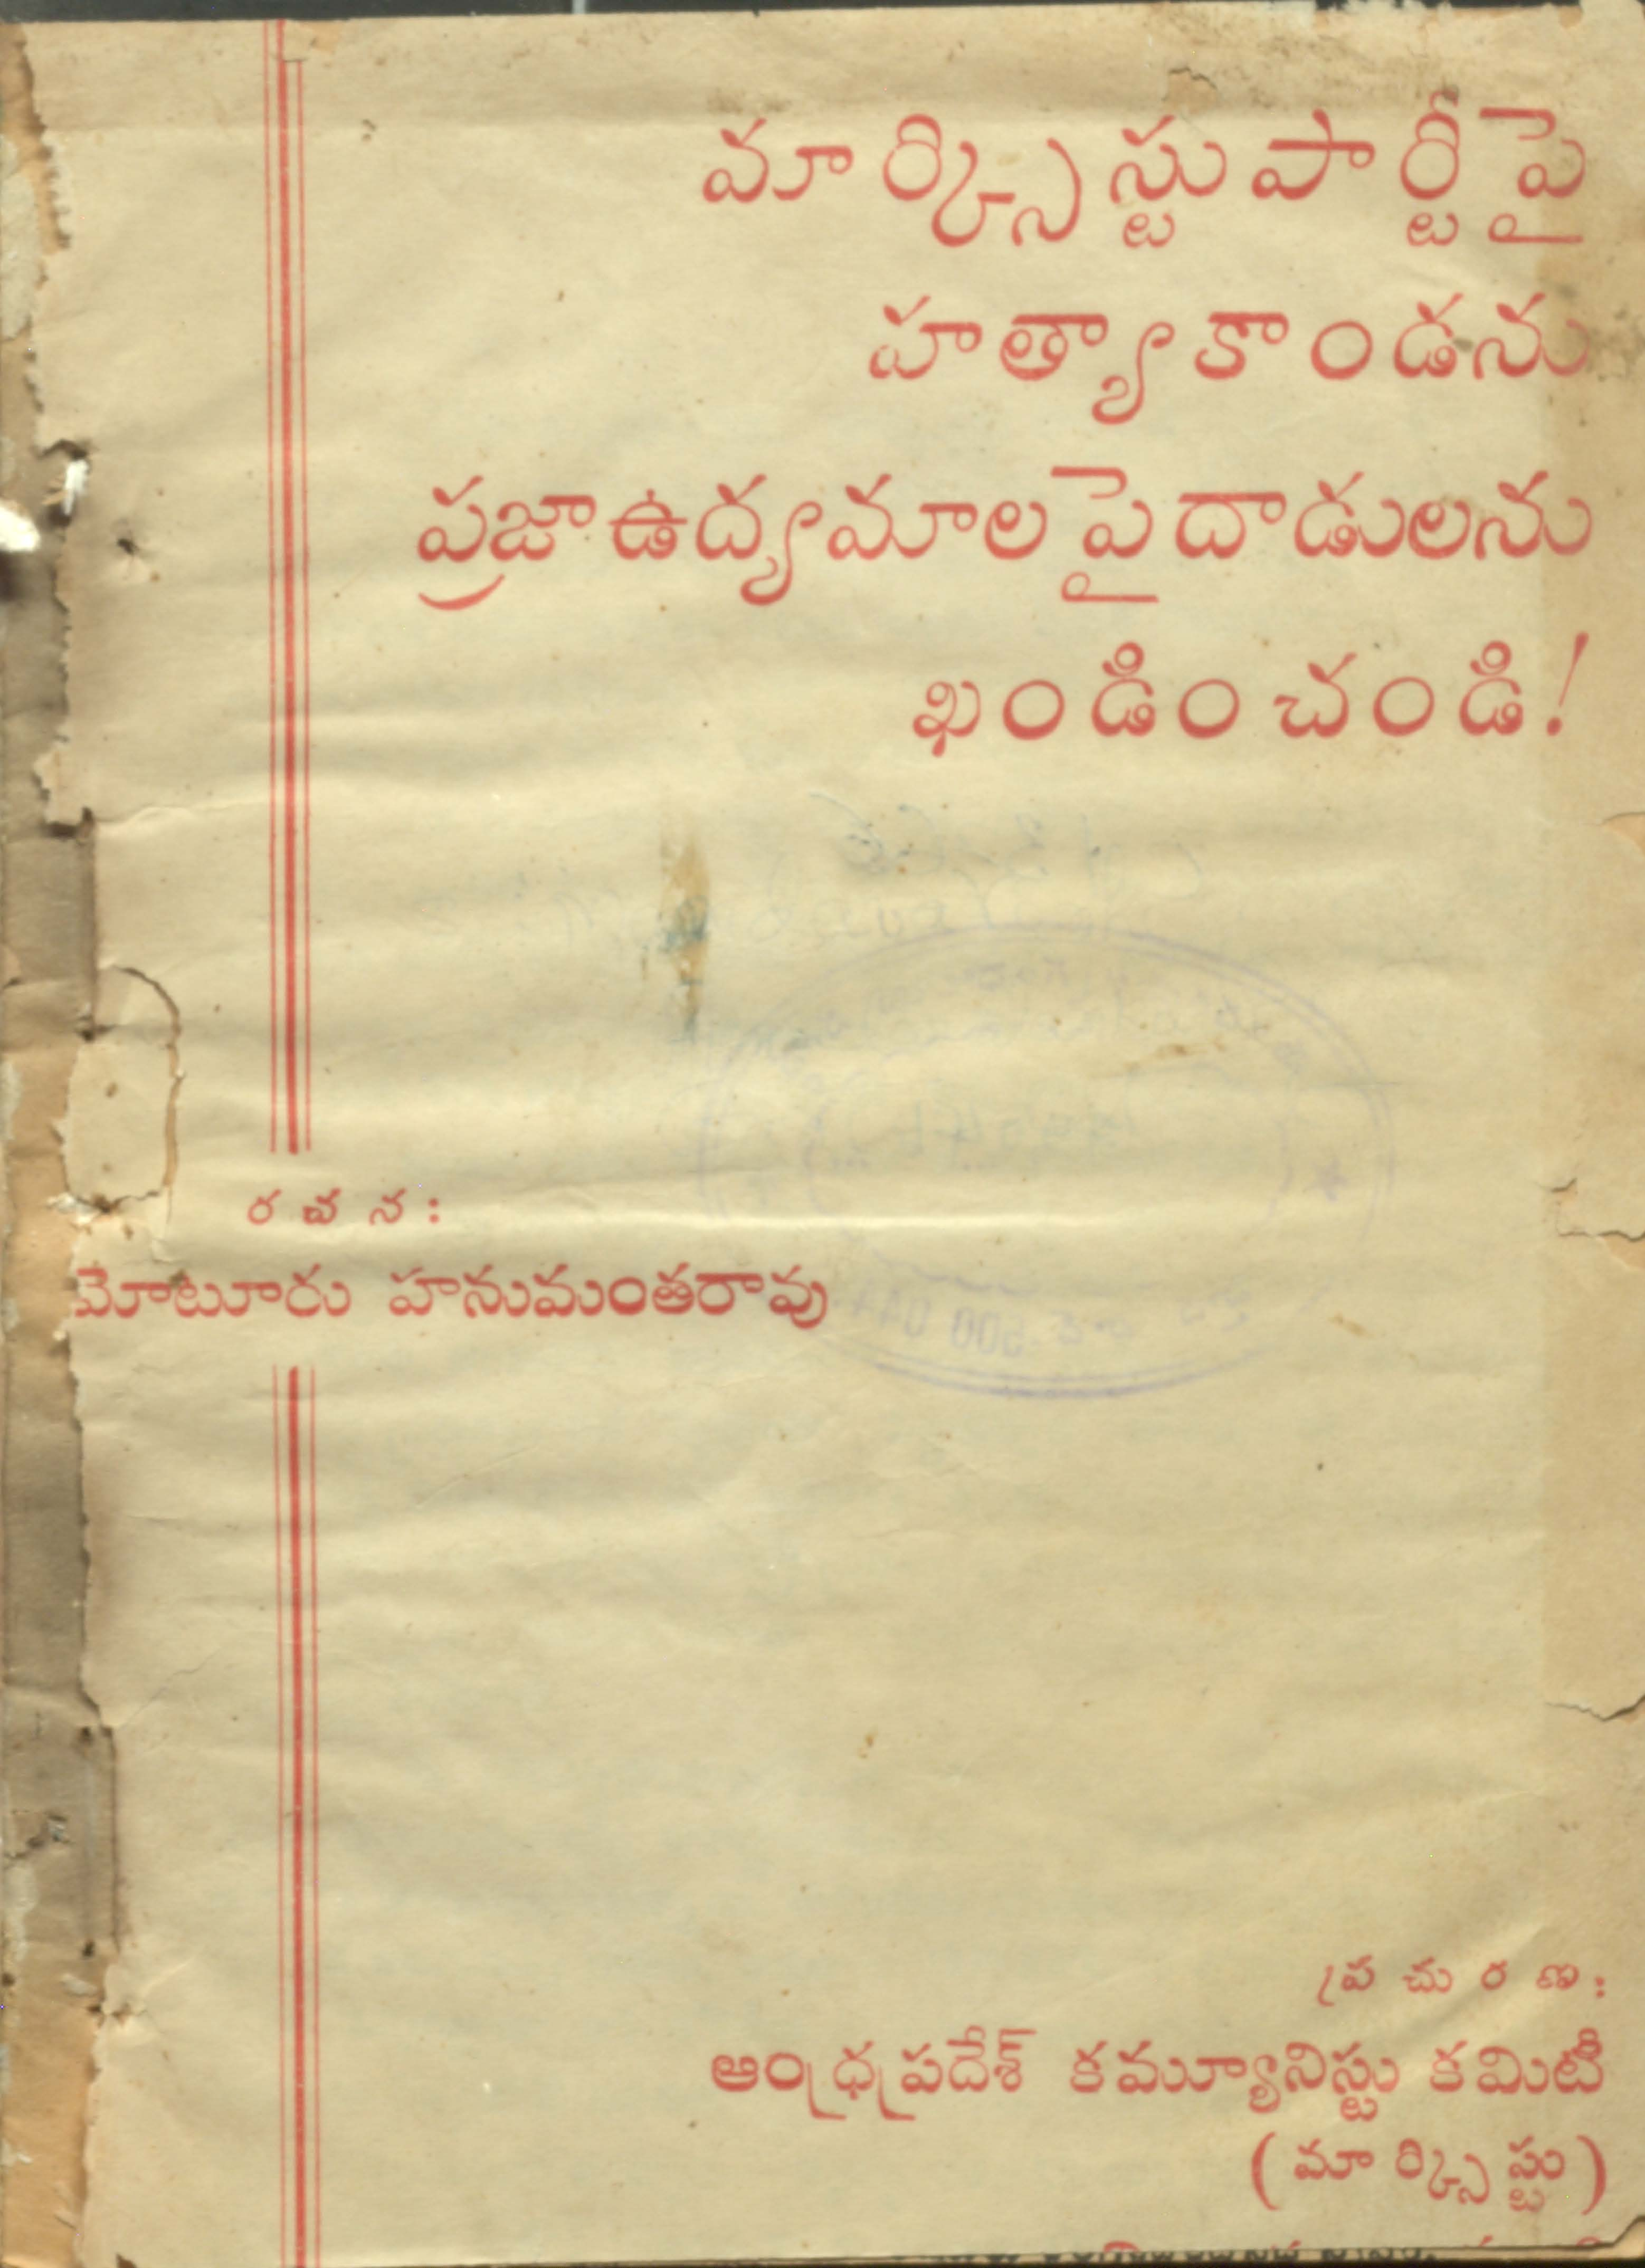 మార్క్సిస్టుపార్టీపై
హత్యాకాండను
ప్రజాఉద్యమాలపైదాడులను
ఖండించండి!
రచన:
మోటూరు హనుమంతరావు
ప్రచురణ:
ఆంధ్రప్రదేశ్ కమ్యూనిస్టు కమిటీ
(మార్క్సిస్టు)